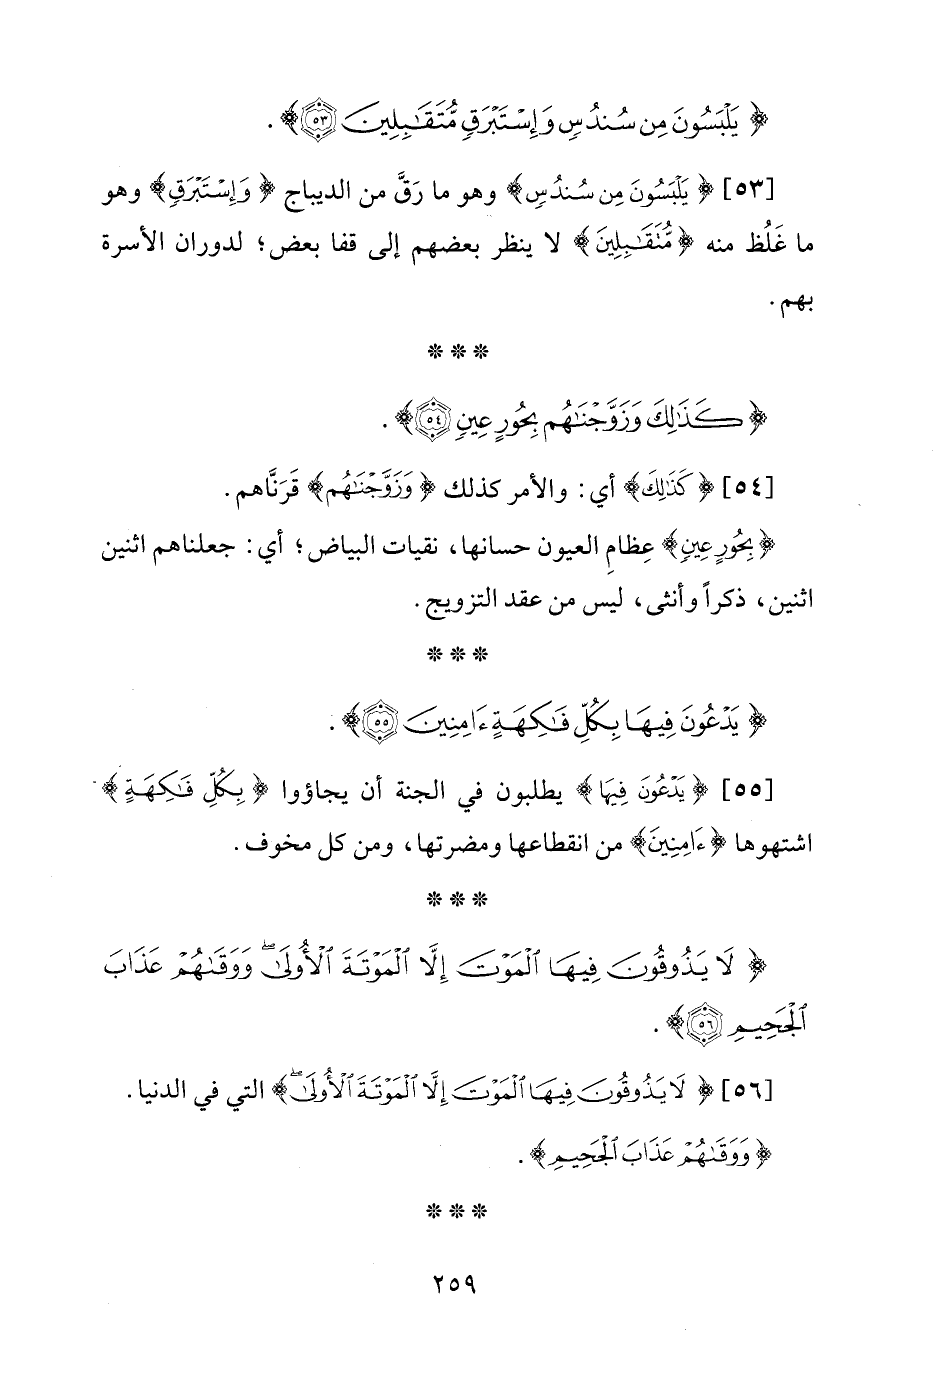 ﴿ يَلْبَسُونَ مِن سُندُسٍ وَإِسْتَبْرَقٍ مُّتَقَٰبِلِينَ ٥٣ ﴾ .
[٥٣] ﴿ يَلْبَسُونَ مِن سُندُسٍ﴾ وهو ما رَقَّ من الديباج ﴿ وَإِسْتَبْرَقٍ﴾ وهو
ما غَلُظ منه ﴿مُّتَقَٰبِلِينَ﴾ لا ينظر بعضهم إلى قفا بعض؛ لدوران الأسرة
بهم .
* * *
﴿ كَذَٰلِكَ وَزَوَّجْنَٰهُم بِحُورٍ عِينٍ ٥٤ ﴾ .
[٥٤] ﴿ كَذَٰلِكَ﴾ أي: والأمر كذلك ﴿ وَزَوَّجْنَٰهُم﴾ قَرَنَّاهم .
﴿ بِحُورٍ عِينٍ﴾ عِظامِ العيون حسانها، نقيات البياض؛ أي: جعلناهم اثنين
اثنين، ذكراً وأنثى، ليس من عقد التزويج .
* * *
﴿ يَدْعُونَ فِيهَا بِكُلِّ فَٰكِهَةٍ ءَامِنِينَ ٥٥ ﴾ .
[٥٥] ﴿ يَدْعُونَ فِيهَا﴾ يطلبون في الجنة أن يجاؤوا ﴿ بِكُلِّ فَٰكِهَةٍ﴾
اشتهوها ﴿ءَامِنِينَ﴾ من انقطاعها ومضرتها، ومن كل مخوف .
* * *
﴿ لَا يَذُوقُونَ فِيهَا ٱلْمَوْتَ إِلَّا ٱلْمَوْتَةَ ٱلْأُولَىٰۖ وَوَقَىٰهُمْ عَذَابَ
ٱلْجَحِيمِ ٥٦ ﴾ .
[٥٦] ﴿ لَا يَذُوقُونَ فِيهَا ٱلْمَوْتَ إِلَّا ٱلْمَوْتَةَ ٱلْأُولَىٰۖ﴾ التي في الدنيا .
﴿ وَوَقَىٰهُمْ عَذَابَ ٱلْجَحِيمِ﴾ .
* * *
٢٥٩